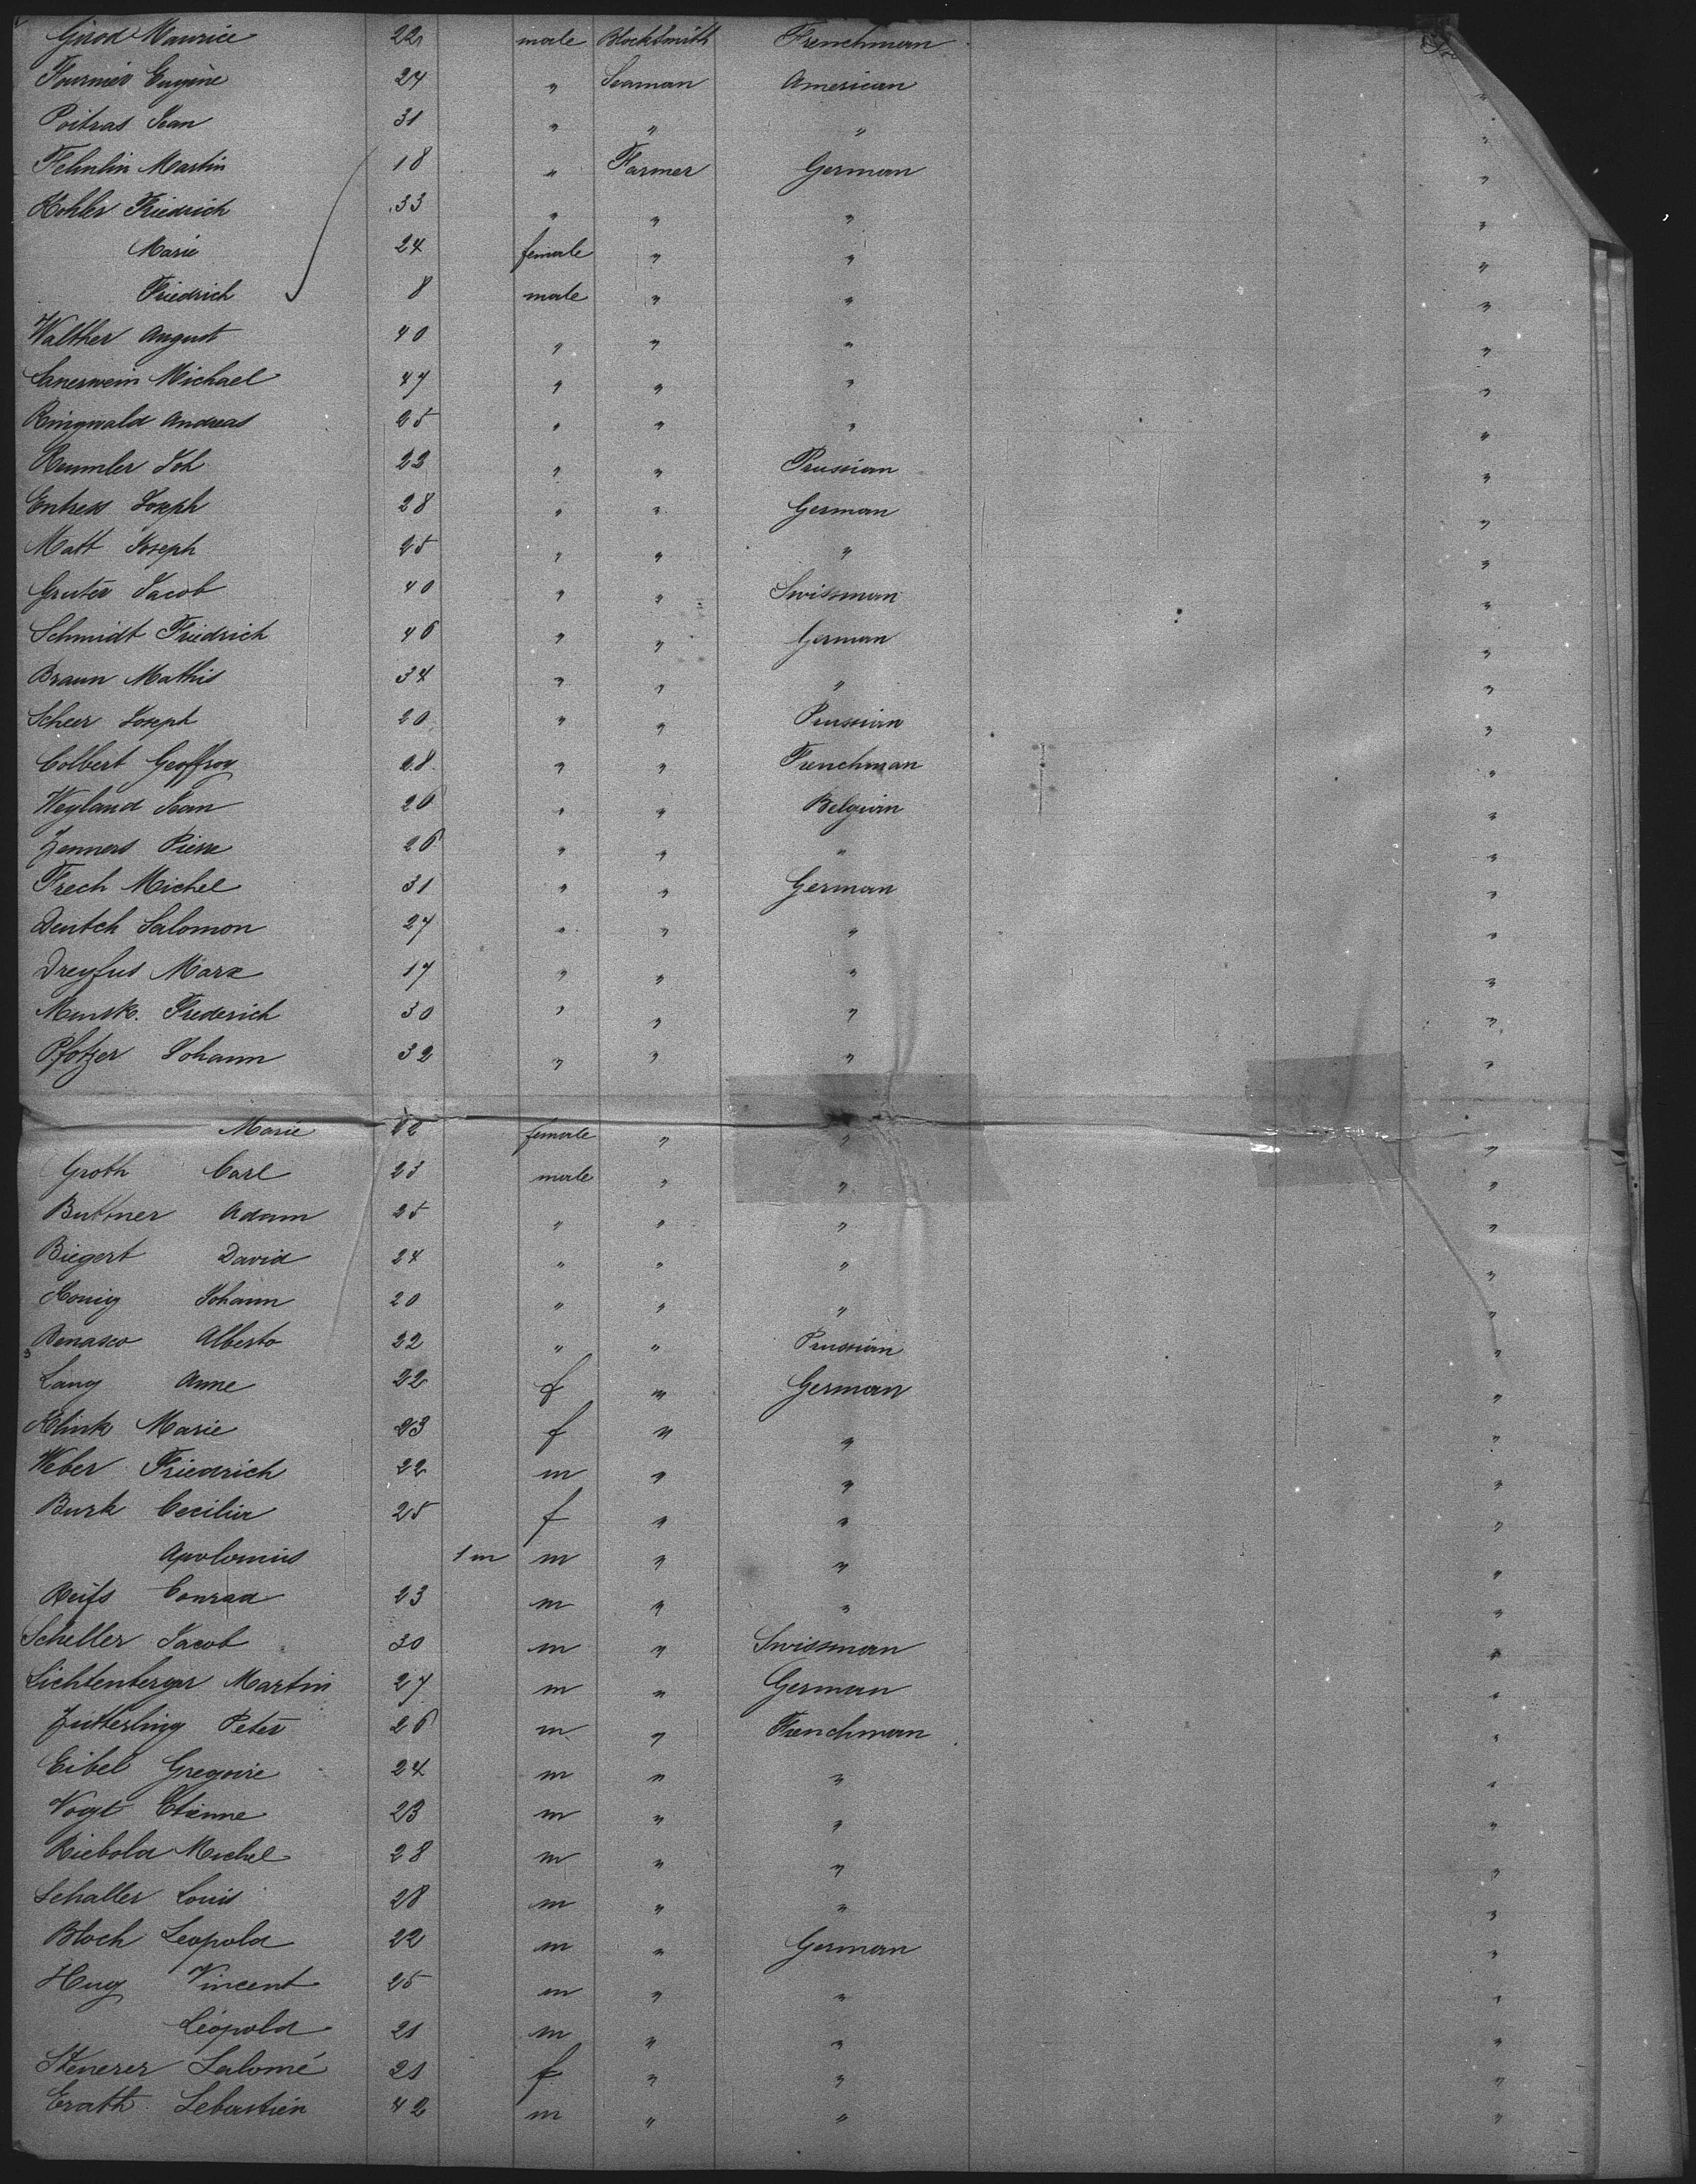 Girod Maurice 22 male Blacksmith Frenchman
Fournier Eugène 24 " Seaman American "
Poitras Jean 31 " " " "
Fehnlin Martin 18 " Farmer German "
Kohler Friedrich 33 " " " "
Marie 24 female " " "
Friedrich 8 male " " "
Walther August 40 " " " "
Sauerwein Michael 47 " " " "
Ringwald Andreas 25 " " " "
Rummler Joh 23 " " Prussian "
Entress Joseph 28 " " German "
Matt Joseph 25 " " " "
Gruter Jacob 40 " " Swissman "
Schmidt Friedrich 46 " " German "
Braun Mathis 34 " " " "
Scheer Joseph 20 " " Prussian "
Colbert Geoffroy 28 " " Frenchman "
Weyland Jean 26 " " Belgian "
Zenners Pierre 26 " " " "
Frech Michel 31 " " German "
Deutch Salomon 27 " " " "
Dreyfus Marx 17 " " " "
Munsk. Frederich 30 " " " "
Pfotzer Johann 32 " " " "
Marie 22 female " " "
Groth Carl 23 male " " "
Buttner Adam 25 " " " "
Biegert David 24 " " " "
Konig Johann 20 " " " "
Benasco Alberto 22 " " Prussian "
Lang Anne 22 f " German "
Klink Marie 23 f " " "
Weber Friedrich 22 m " " "
Burk Cecilia 25 f " " "
Apolonius 1 m m " " "
Reifs Conrad 23 m " " "
Scheller Jacob 30 m " Swissman "
Lichtenberger Martin 27 m " German "
Zutterling Peter 26 m " Frenchman "
Eibel Gregoire 24 m " " "
Vogt Etienne 23 m " " "
Riebold Michel 28 m " " "
Schaller Louis 28 m " " "
Bloch Leopold 22 m " German "
Hug Vincent 25 m " " "
Léopold 21 m " " "
Stenerer Salomé 21 f " " "
Erath Sebastien 42 m " " "